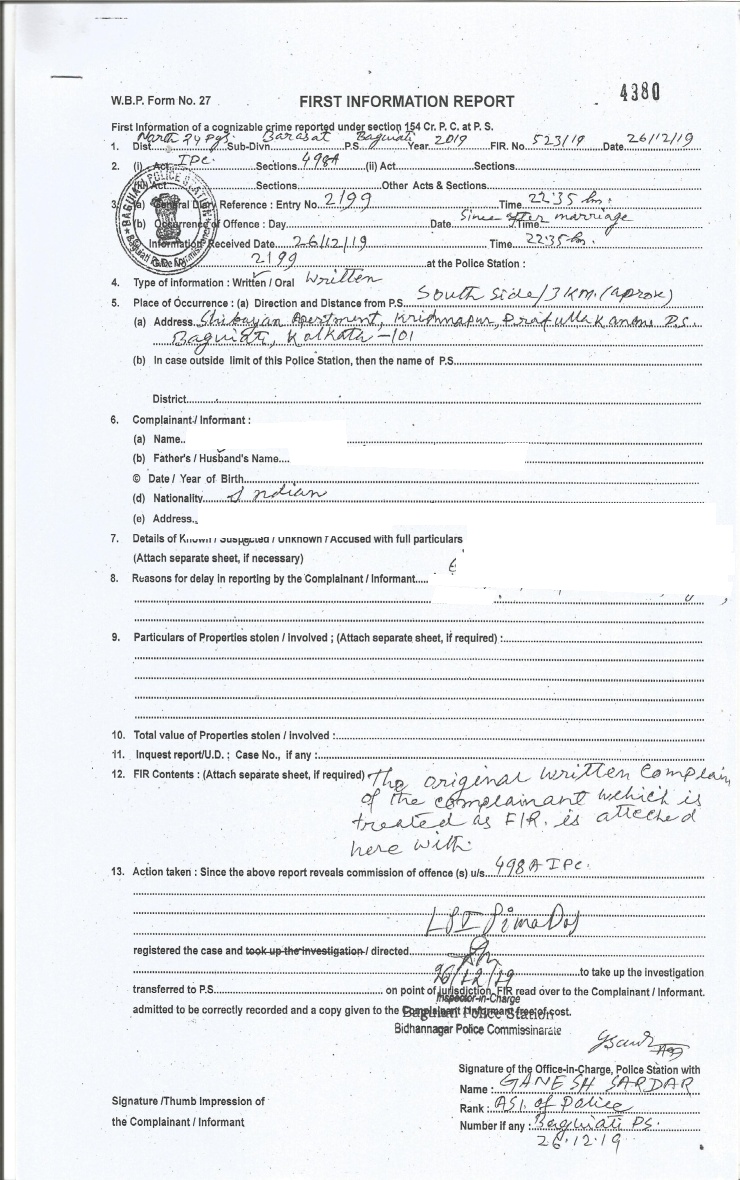 W.B.P. Form No. 27
FIRST INFORMATION REPORT
4380
First Information of a cognizable crime reported under section 154 Cr. P. C. at P. S.
1. Dist. North 24 Pgs. Sub-Divn. Barasat P.S. Baguiati Year 2019 FIR. No. 523/19 Date 26/12/19
2. (i) Act IPC. Sections 498A (ii) Act Sections
Act Sections Other Acts & Sections
3. (a) General Diary Reference : Entry No. 2199 Time 22:35 hrs.
(b) Occurrence of Offence : Day Date Since after marriage Time
Information Received Date 26/12/19 Time 22:35 hrs.
G.De No 2199 at the Police Station :
BAGUIATI POLICE STATION
4. Type of information : Written / Oral Written
5. Place of Occurrence : (a) Direction and Distance from P.S. South Side/3 KM. (aprox)
(a) Address Shibayan Apertment, Krishnapur, Prafullakanan P.S.
Baguiati, Kolkata -101
(b) In case outside limit of this Police Station, then the name of P.S.
District
6. Complainant / Informant :
(a) Name
(b) Father's / Husband's Name
© Date / Year of Birth
(d) Nationality Indian
(e) Address
7. Details of Known / Suspected / Unknown / Accused with full particulars
(Attach separate sheet, if necessary)
8. Reasons for delay in reporting by the Complainant / Informant
9. Particulars of Properties stolen / Involved ; (Attach separate sheet, if required) :
10. Total value of Properties stolen / involved :
11. Inquest report/U.D. ; Case No., if any :
12. FIR Contents : (Attach separate sheet, if required) The original written complain
of the complainant which is
treated as FIR. is atteched
here with.
13. Action taken : Since the above report reveals commission of offence (s) u/s. 498A IPC.
LSI Bima Das
registered the case and took up the investigation / directed
26/12/19 to take up the investigation
transferred to P.S. on point of jurisdiction, FIR read over to the Complainant / Informant.
Inspector-in-Charge
admitted to be correctly recorded and a copy given to the Complainant / Informant free of cost.
Baguiati Police Station
Bidhannagar Police Commissinarate
Signature of the Office-in-Charge, Police Station with
Name : GANESH SARDAR
Rank : ASI. of Police
Number if any : Baguiati PS.
26.12.19
Signature /Thumb Impression of
the Complainant / Informant